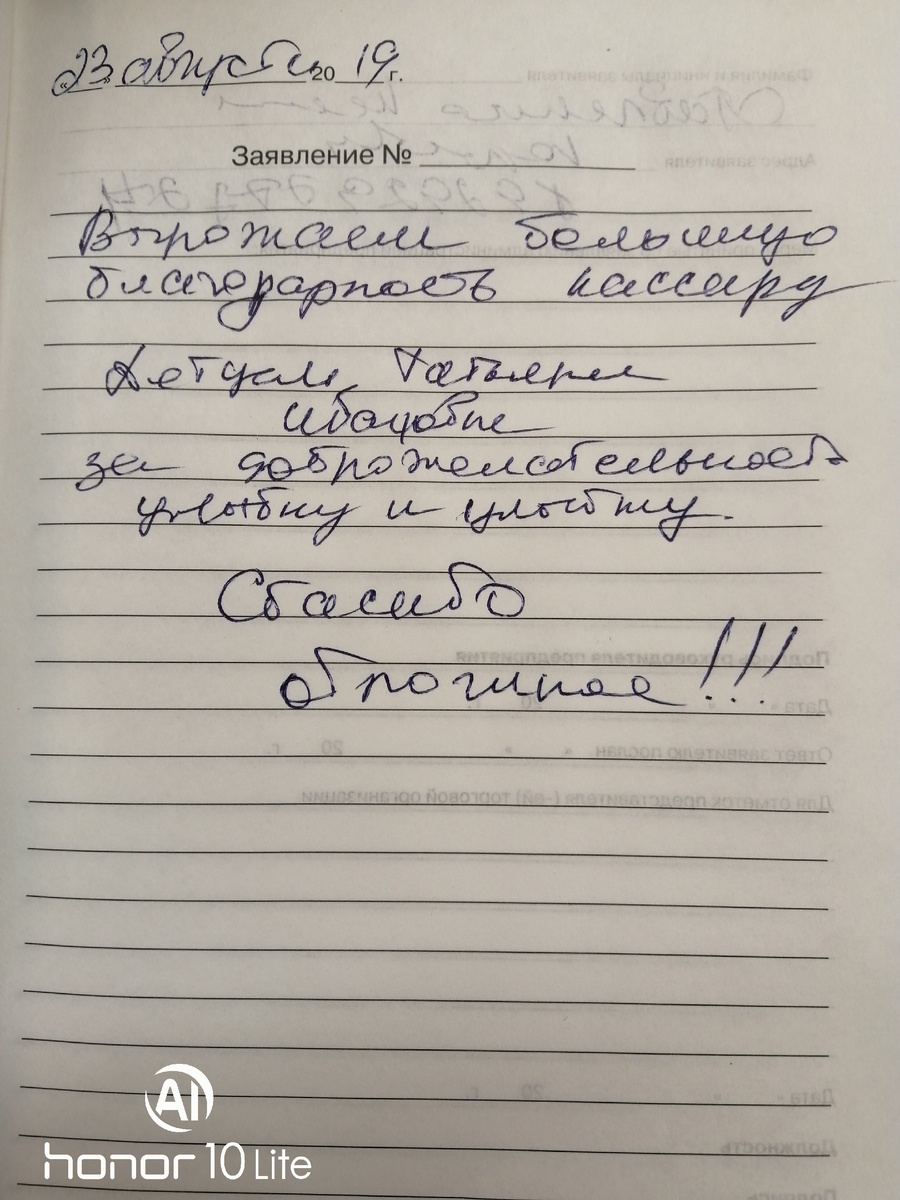 «23» августа 2019 г.
Заявление №
Выражаем большую
благодарность кассиру
Татьяне
за доброжелательность
улыбку и улыбку.
Спасибо
огромное!!!
AI
honor 10 Lite